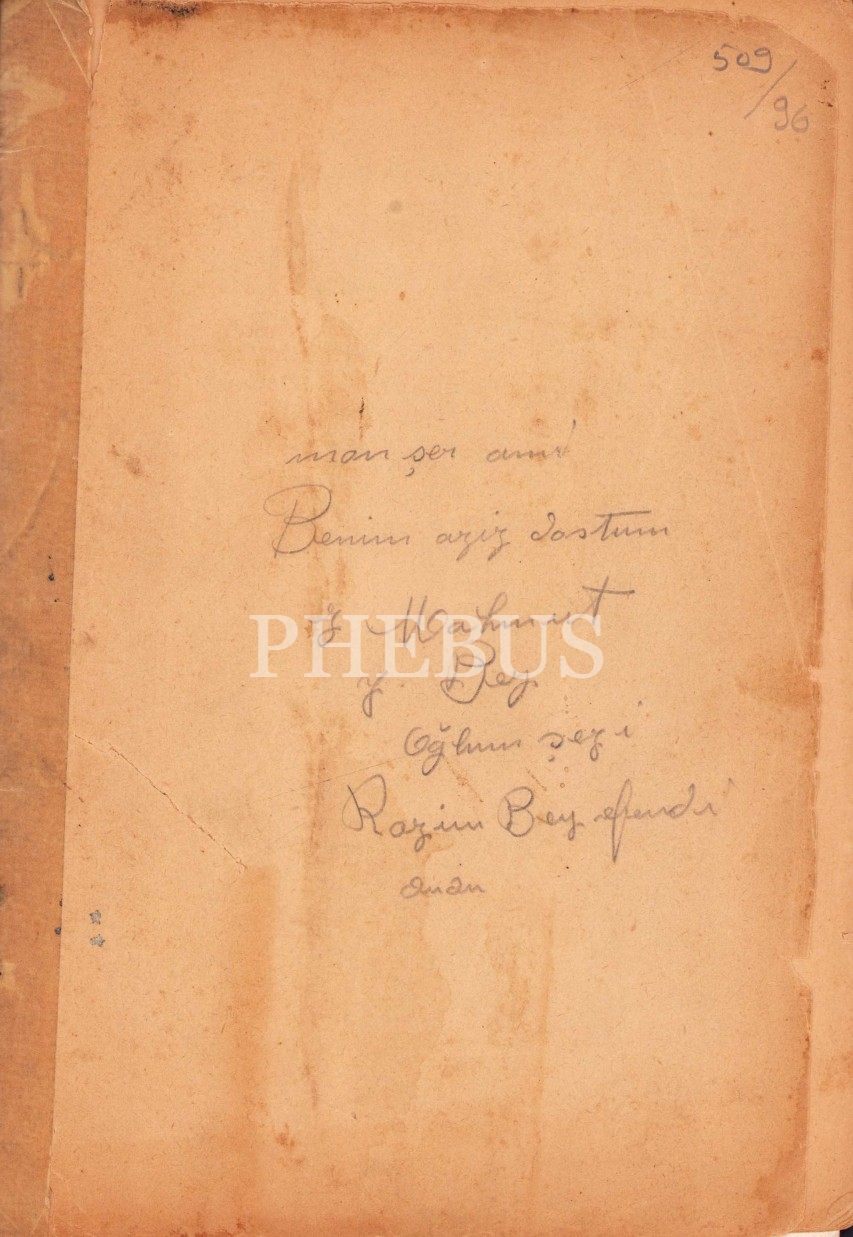 509/96
mon şer ami
Benim aziz dostum
y Mahmut
PHEBUS
y. Bey
Oğlum şezi
Razim Bey efendi